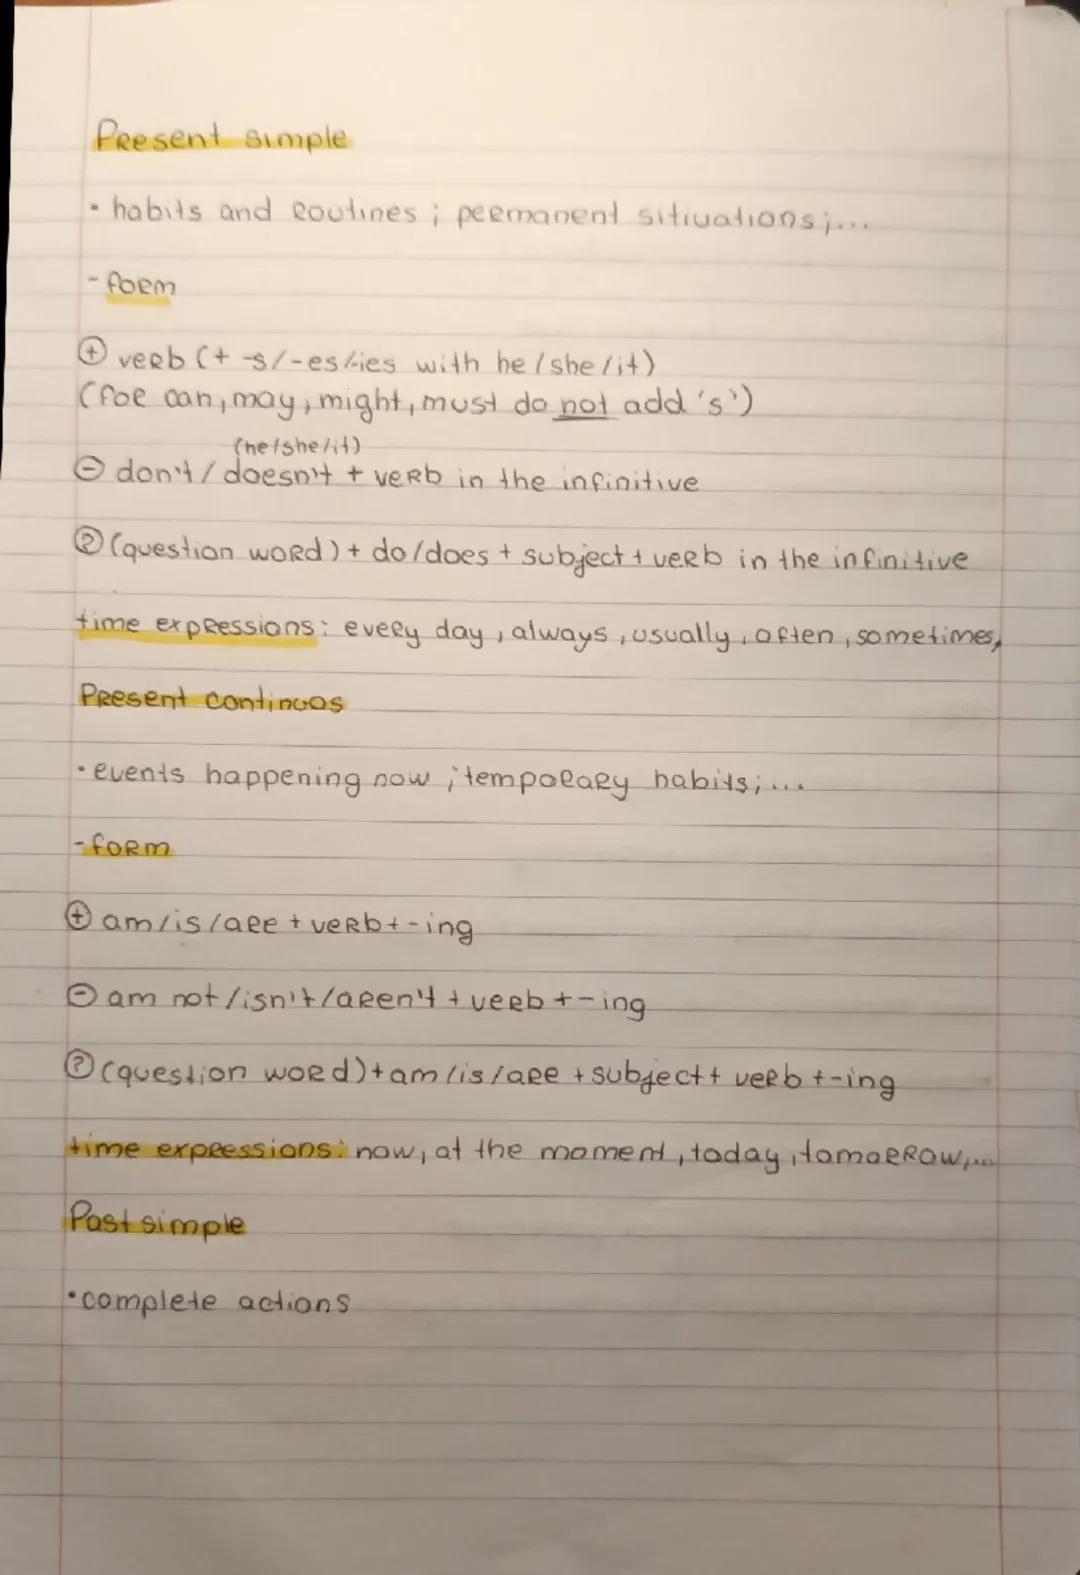 Present simple
• habits and routines ; permanent sitiuations;...
- form
⊕ verb (+ -s/-es/-ies with he/she/it)
(for can, may, might, must do not add 's')
(he/she/it)
⊖ don't / doesn't + verb in the infinitive
? (question word) + do/does + subject + verb in the infinitive
time expressions: every day, always, usually, often, sometimes,
Present continuos
• events happening now ; temporary habits; ...
- form
⊕ am/is/are + verb + -ing
⊖ am not/isn't/aren't + verb + -ing
? (question word) + am/is/are + subject + verb + -ing
time expressions: now, at the moment, today, tomorrow,...
Past simple
• complete actions